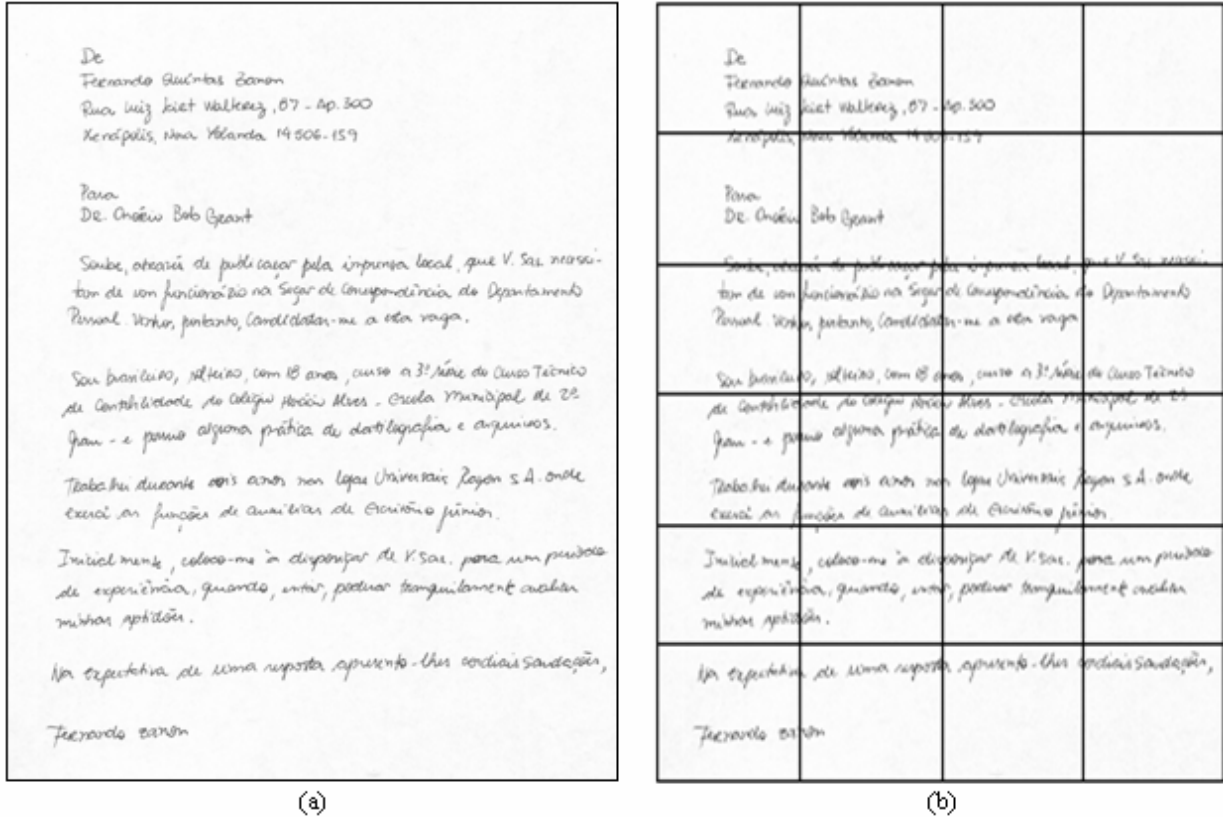 De
Fernando Quintas Zanon
Rua Luiz Kiet Walterez, 87 - Ap. 300
Xenópolis, Nova Yolanda 14506-159
Para
DR. Onofre Bob Grant
Soube, através de publicaçao pela imprensa local, que V. Sas. necessi-
tam de um funcionário na Seçao de Correspondência do Departamento
Pessoal. Venho, portanto, Candidatar-me a esta vaga.
Sou brasileiro, solteiro, com 18 anos, curso a 3ª série do Curso Técnico
de Contabilidade do Colégio Alves - escola Municipal de 2º
grau - e possuo alguma prática de datilografia e arquivos.
Trabalhei durante seis anos nas lojas Universais Ragon S.A. onde
exerci as funções de auxiliar de Escritório júnior.
Inicialmente, coloco-me à disposiçao de V. Sas. para um período
de experiência, quando, entao, poderao tranquilamente avaliar
minhas aptidões.
Na expectativa de uma resposta apresento-lhes cordiais saudações,
Fernando Zanon
(a)
De
Fernando Quintas Zanon
Rua Luiz Kiet Walterez, 87 - Ap. 300
Xenópolis, Nova Yolanda 14506-159
Para
DR. Onofre Bob Grant
Soube, através de publicaçao pela imprensa local, que V. Sas. necessi-
tam de um funcionário na Seçao de Correspondência do Departamento
Pessoal. Venho, portanto, Candidatar-me a esta vaga
Sou brasileiro, solteiro, com 18 anos, curso a 3ª série do Curso Técnico
de Contabilidade do Colégio Alves - escola Municipal de 2º
grau - e possuo alguma prática de datilografia e arquivos.
Trabalhei durante seis anos nas lojas Universais Ragon S.A. onde
exerci as funções de auxiliar de Escritório júnior.
Inicialmente, coloco-me à disposiçao de V. Sas. para um período
de experiência, quando, entao, poderao tranquilamente avaliar
minhas aptidões.
Na expectativa de uma resposta apresento-lhes cordiais saudações,
Fernando Zanon
(b)